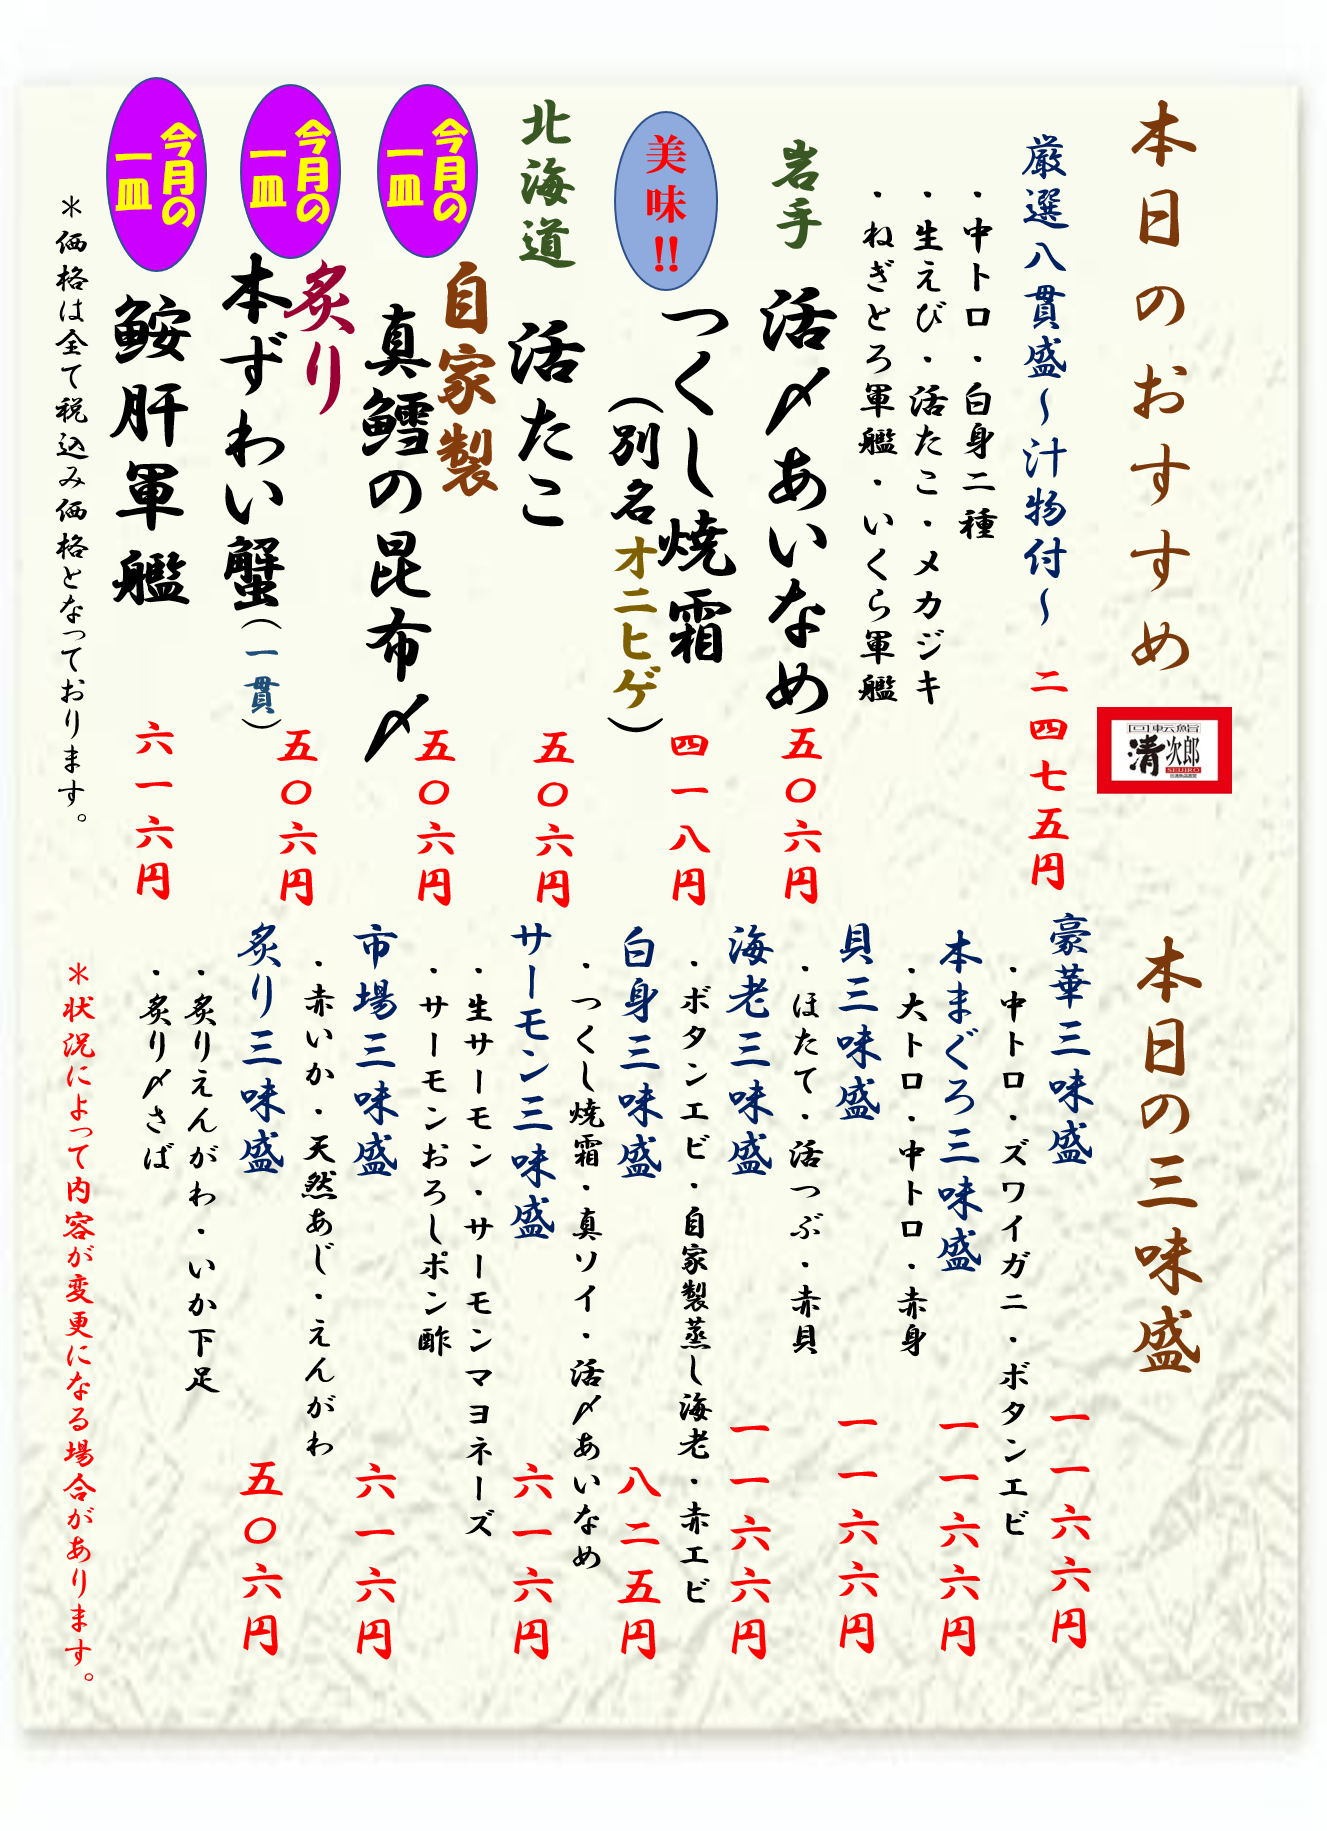 本日のおすすめ
回転鮨
清次郎
SEIJIRO
厳選八貫盛~汁物付~ 二四七五円
・中トロ・白身二種
・生えび・活たこ・メカジキ
・ねぎとろ軍艦・いくら軍艦
岩手
活〆あいなめ 五〇六円
美味!!
つくし焼霜 四一八円
(別名オニヒゲ)
北海道
活たこ 五〇六円
今月の
一皿
自家製
真鱈の昆布〆 五〇六円
今月の
一皿
炙り
本ずわい蟹(一貫) 五〇六円
今月の
一皿
鮟肝軍艦 六一六円
*価格は全て税込み価格となっております。
本日の三味盛
豪華三味盛 一一六六円
・中トロ・ズワイガニ・ボタンエビ
本まぐろ三味盛 一一六六円
・大トロ・中トロ・赤身
貝三味盛 一一六六円
・ほたて・活つぶ・赤貝
海老三味盛 一一六六円
・ボタンエビ・自家製蒸し海老・赤エビ
白身三味盛 八二五円
・つくし焼霜・真ソイ・活〆あいなめ
サーモン三味盛 六一六円
・生サーモン・サーモンマヨネーズ
・サーモンおろしポン酢
市場三味盛 六一六円
・赤いか・天然あじ・えんがわ
炙り三味盛 五〇六円
・炙りえんがわ・いか下足
・炙り〆さば
*状況によって内容が変更になる場合があります。